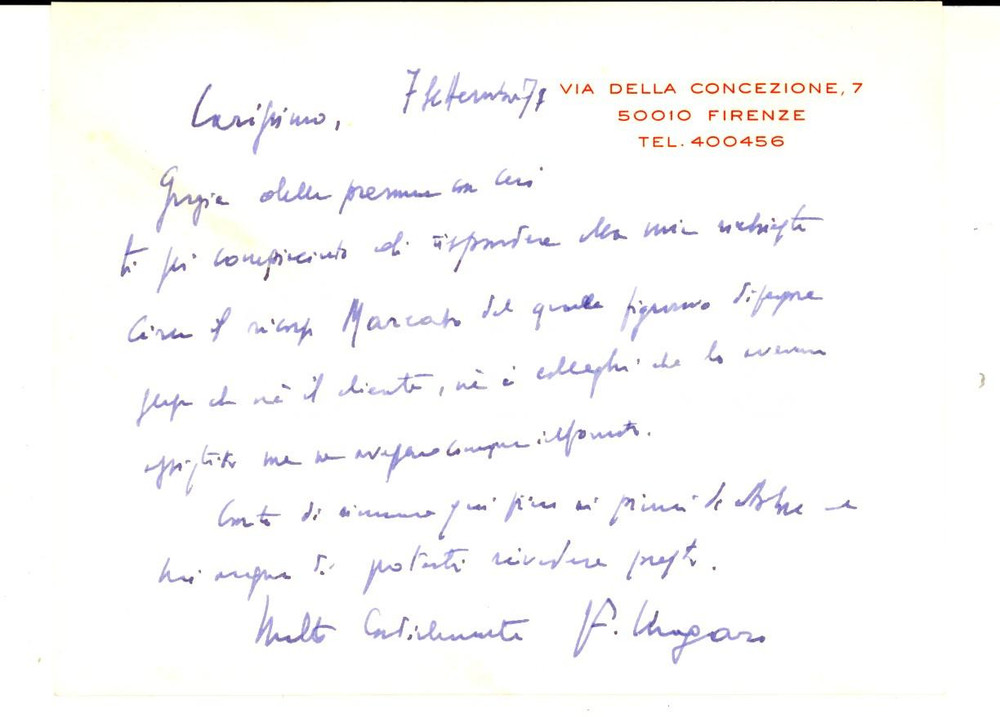 Carissimo, 7 Settembre 7
VIA DELLA CONCEZIONE, 7
50010 FIRENZE
TEL. 400456
Grazie della premura con cui
ti sei compiaciuto di rispondere alla mia richiesta
circa il ricorso Marcato del quale figuravo difensore
senza che né il cliente, né i colleghi che lo avevano
assistito me ne avessero comunque informato.
Conto di rimanere qui fino ai primi di e
mi auguro di poterti rivedere presto.
Molto Cordialmente F. Ungaro